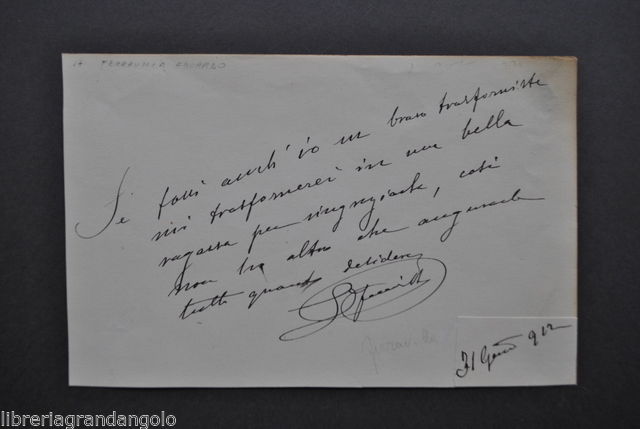 FERRAVILLA EDOARDO
Se fossi anch'io un bravo trasformista
mi trasformerei in una bella
ragazza per ringraziarla, così
non ho altro che augurarle
tutto quanto desidera
EFerravilla
Ferravilla
31 Genn 912
libreriagrandangolo